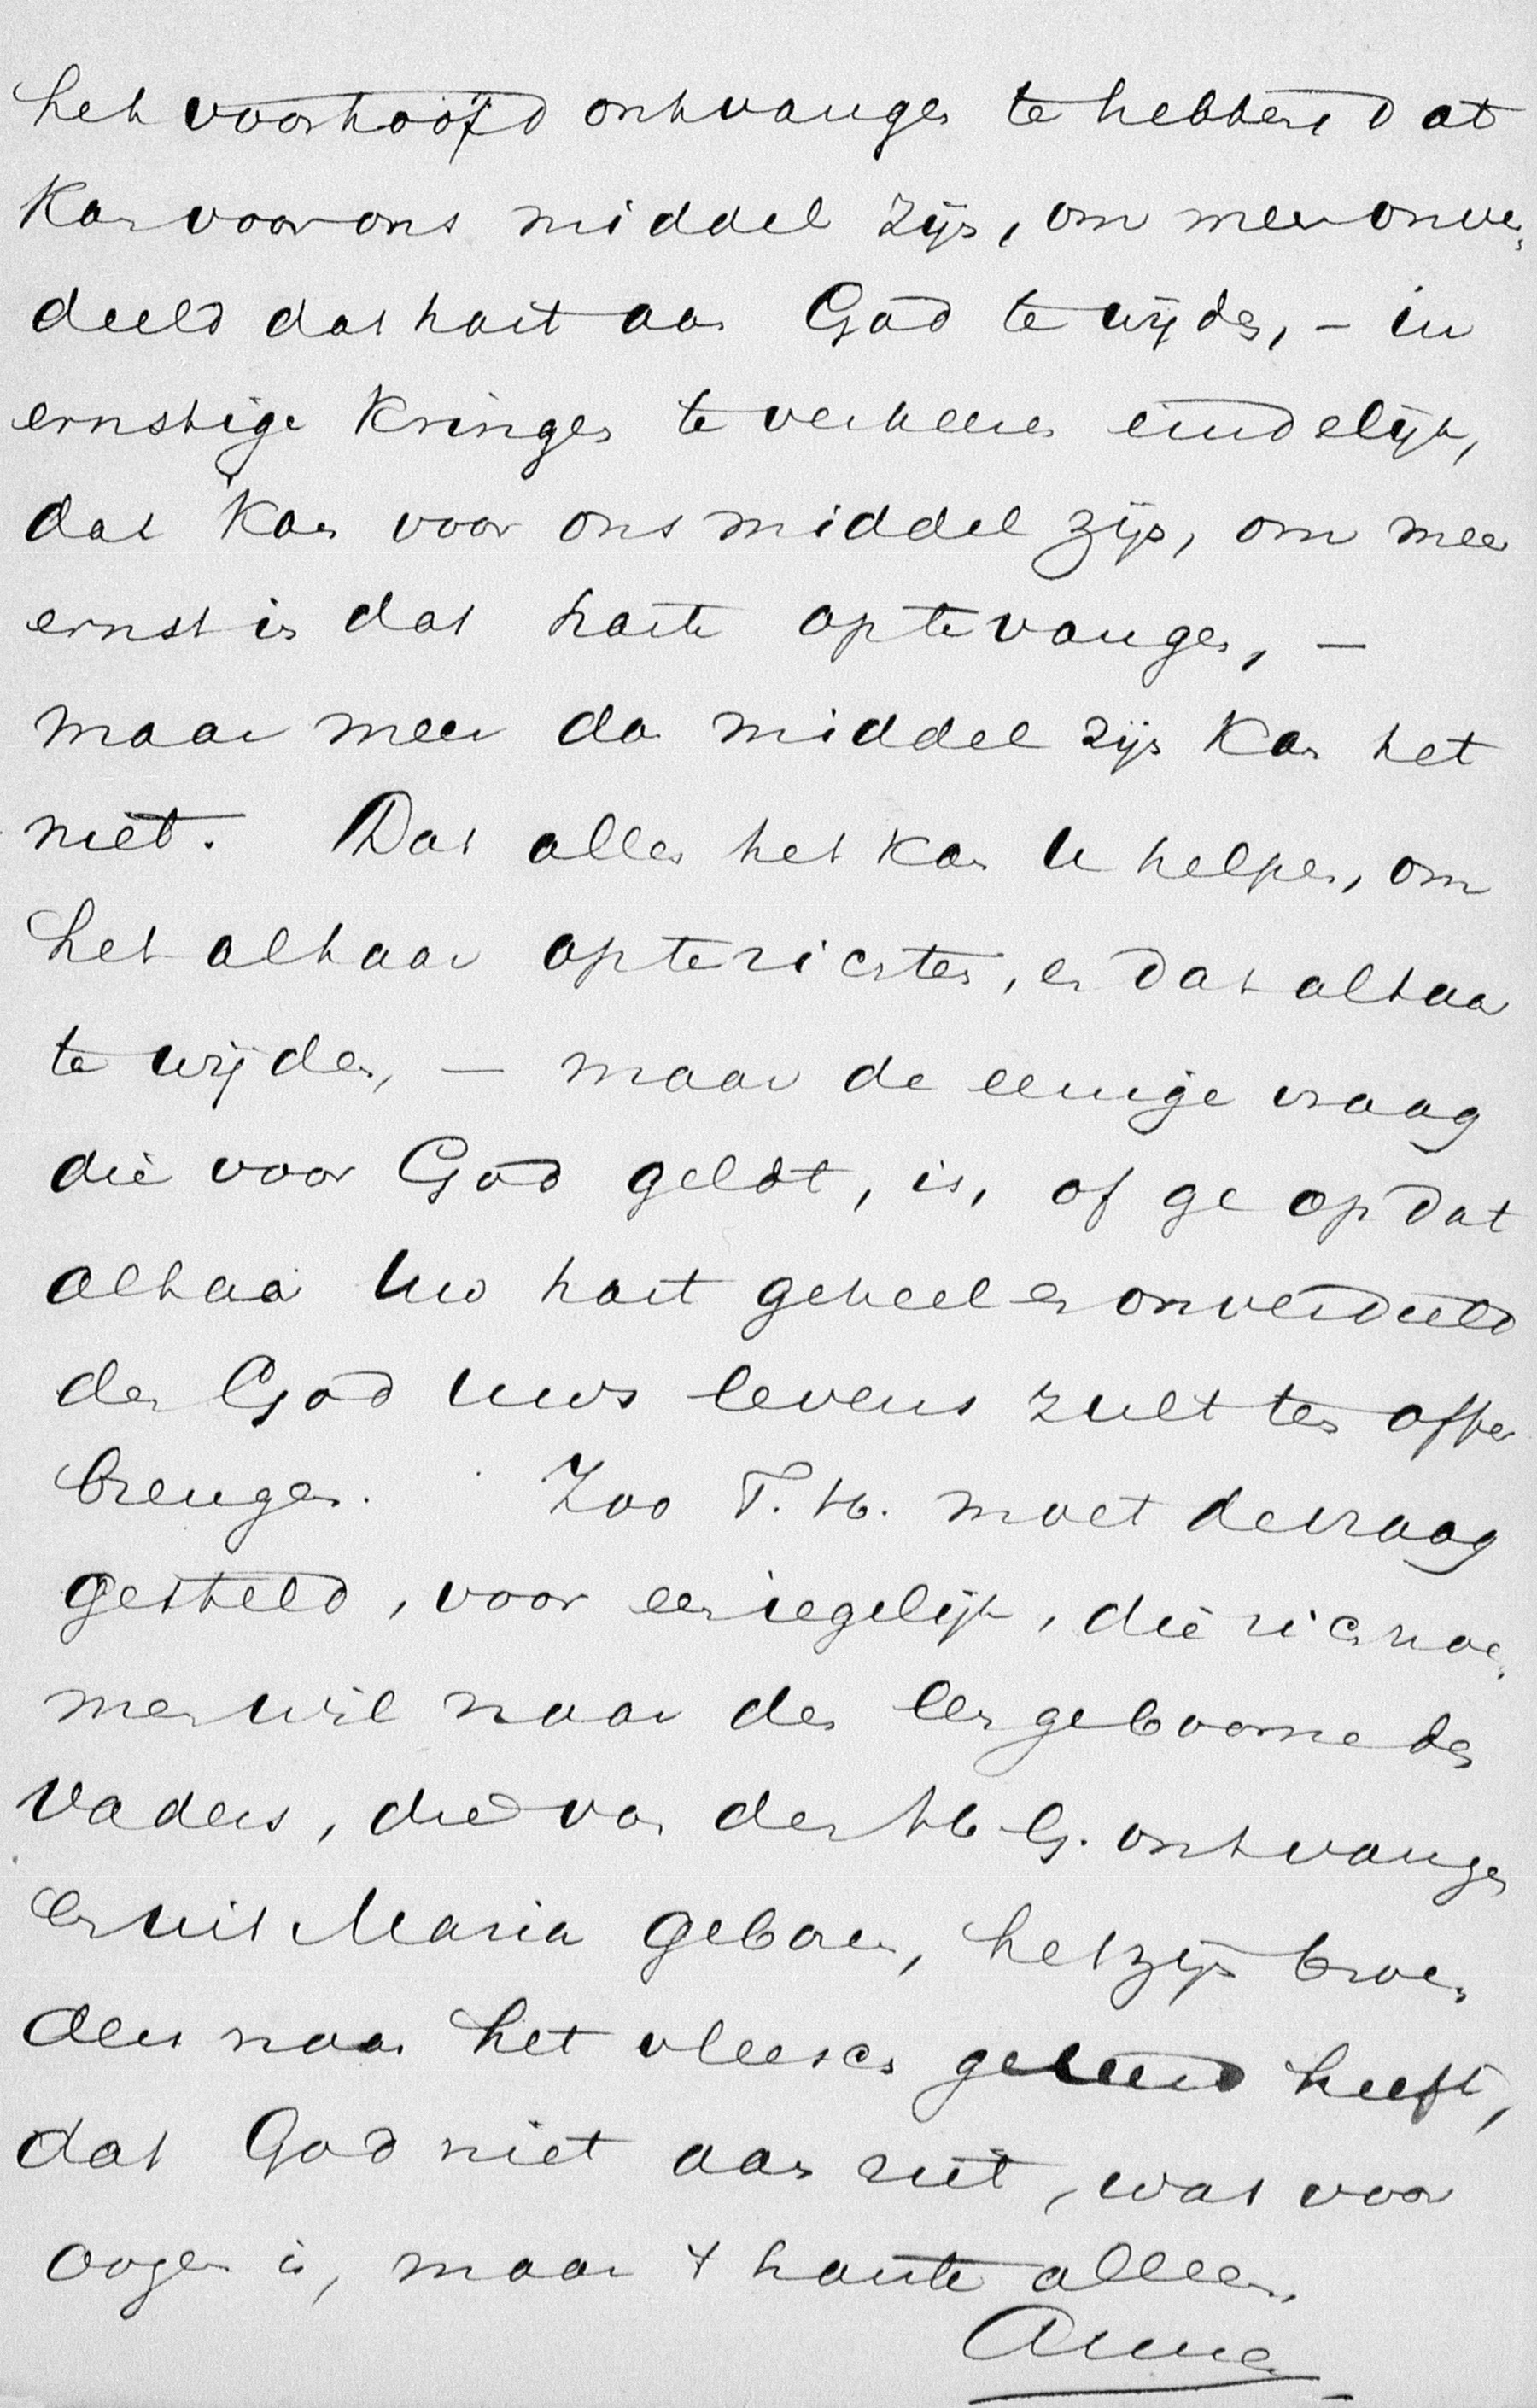 het voorhoofd ontvangen te hebben dat
Kan voor ons middel zijn, om meer onver-
deeld dat hart aan God te wijden, - in
ernstige Kringen te verkeeren eindelijk,
dat Kan voor ons middel zijn, om meer
ernst in dat harte op te vangen, -
maar meer dan middel zijn Kan het
niet. Dat alles het kan U helpen, om
het altaar op te richten, en dat altaar
te wijden, - maar de eenige vraag
die voor God geldt, is, of ge op dat
altaar Uw hart geheel en onverdeeld
den God uws levens zult ten offer
brengen. Zoo T. H. moet de vraag
gesteld, voor een iegelijk, die zich noe-
men wil naar den Eengeboorne des
Vaders, die van den H G. ontvangen
En uit Maria geboren, hetzij broe-
ders naar het vleesch gekend heeft,
dat God niet aan ziet, wat voor
oogen is, maar 't harte alleen.
Amen